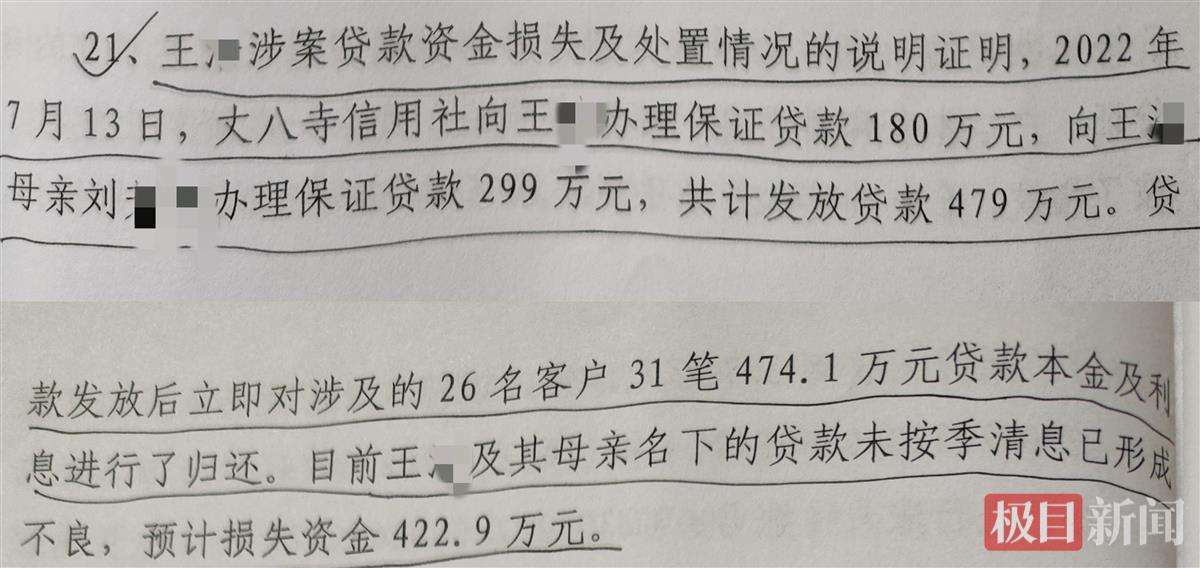 21、王 涉案贷款资金损失及处置情况的说明证明，2022年
7月13日，丈八寺信用社向王 办理保证贷款180万元，向王
母亲刘 办理保证贷款299万元，共计发放贷款479万元。贷
款发放后立即对涉及的26名客户31笔474.1万元贷款本金及利
息进行了归还。目前王 及其母亲名下的贷款未按季清息已形成
不良，预计损失资金422.9万元。
极目新闻